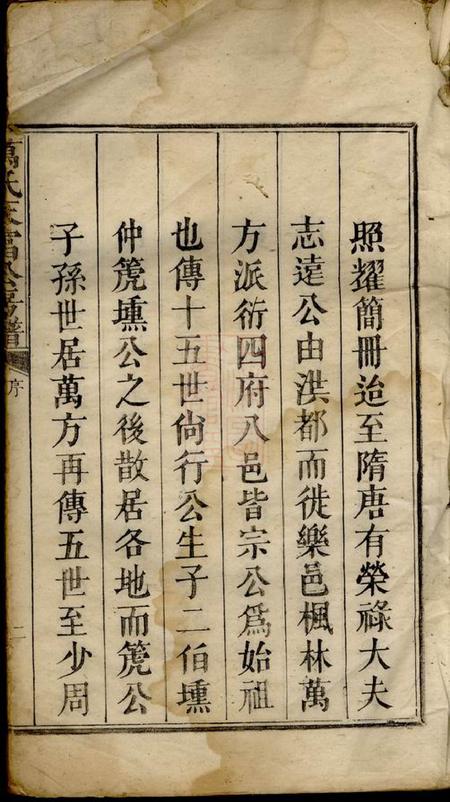 照耀簡冊迨至隋唐有榮祿大夫
志達公由洪都而徙樂邑楓林萬
方派衍四府八邑皆宗公爲始祖
也傳十五世尙行公生子二伯壎
仲篪壎公之後散居各地而篪公
子孫世居萬方再傳五世至少周
萬氏
譜
序
二